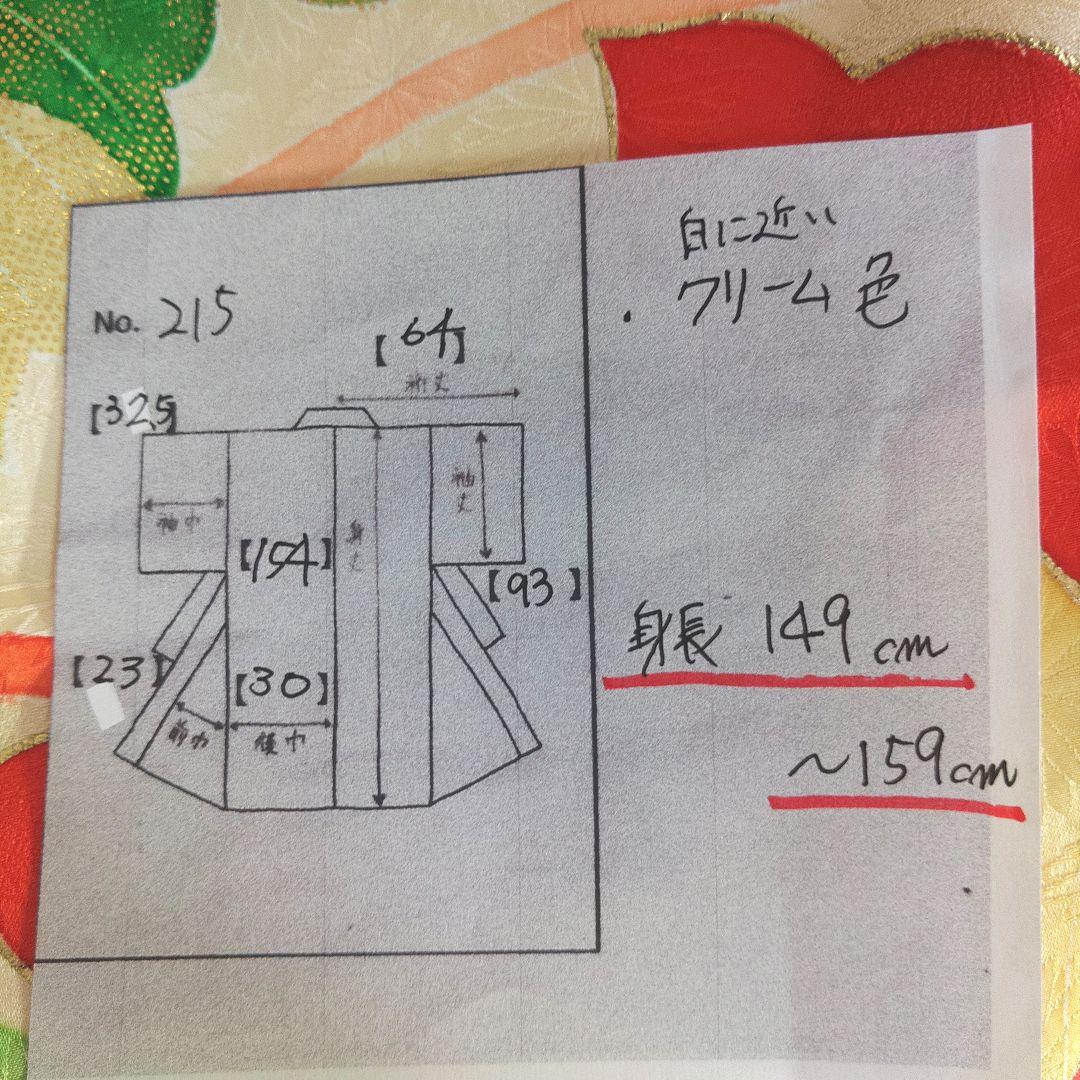 白に近い
・クリーム色
No. 215
【64】
裄丈
【32.5】
袖巾
袖丈
身丈
【154】
【93】
【23】
【30】
前巾
後巾
身長 149cm
~159cm